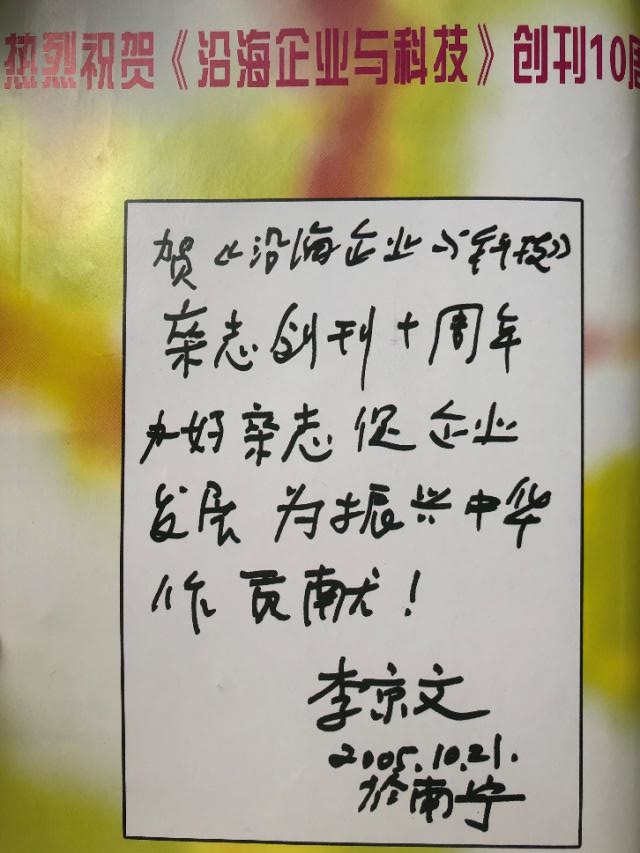 热烈祝贺《沿海企业与科技》创刊10周
贺《沿海企业与科技》
杂志创刊十周年
办好杂志促企业
发展为振兴中华
作贡献！
李京文
2005.10.21.
於南宁